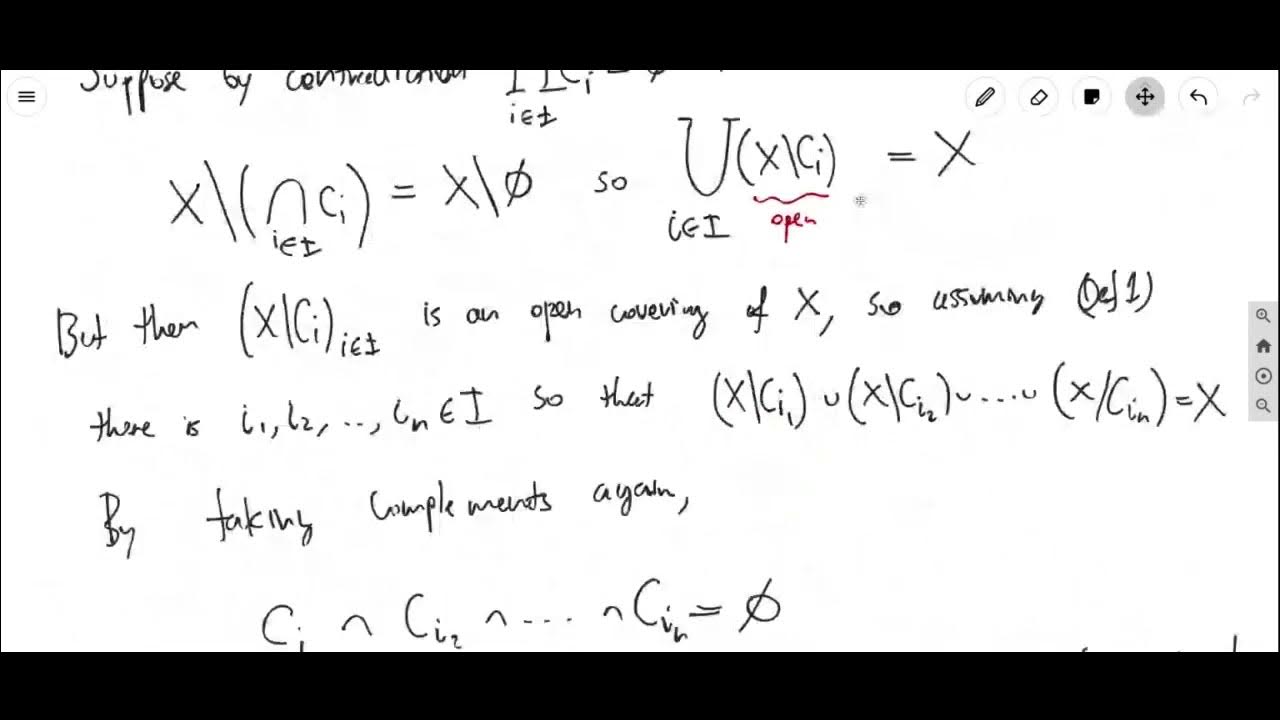 Suppose by contradiction ⋂ Cᵢ = ∅
i∈I
X\(⋂ Cᵢ) = X\∅ so ⋃(X\Cᵢ) = X
i∈I i∈I open
But then (X\Cᵢ)i∈I is an open covering of X, so assuming (Def 1)
there is i₁, i₂, .., iₙ ∈ I so that (X\Cᵢ₁) ∪ (X\Cᵢ₂) ∪ .... ∪ (X/Cᵢₙ) = X
By taking complements again,
Cᵢ ∩ Cᵢ₂ ∩ .... ∩ Cᵢₙ = ∅